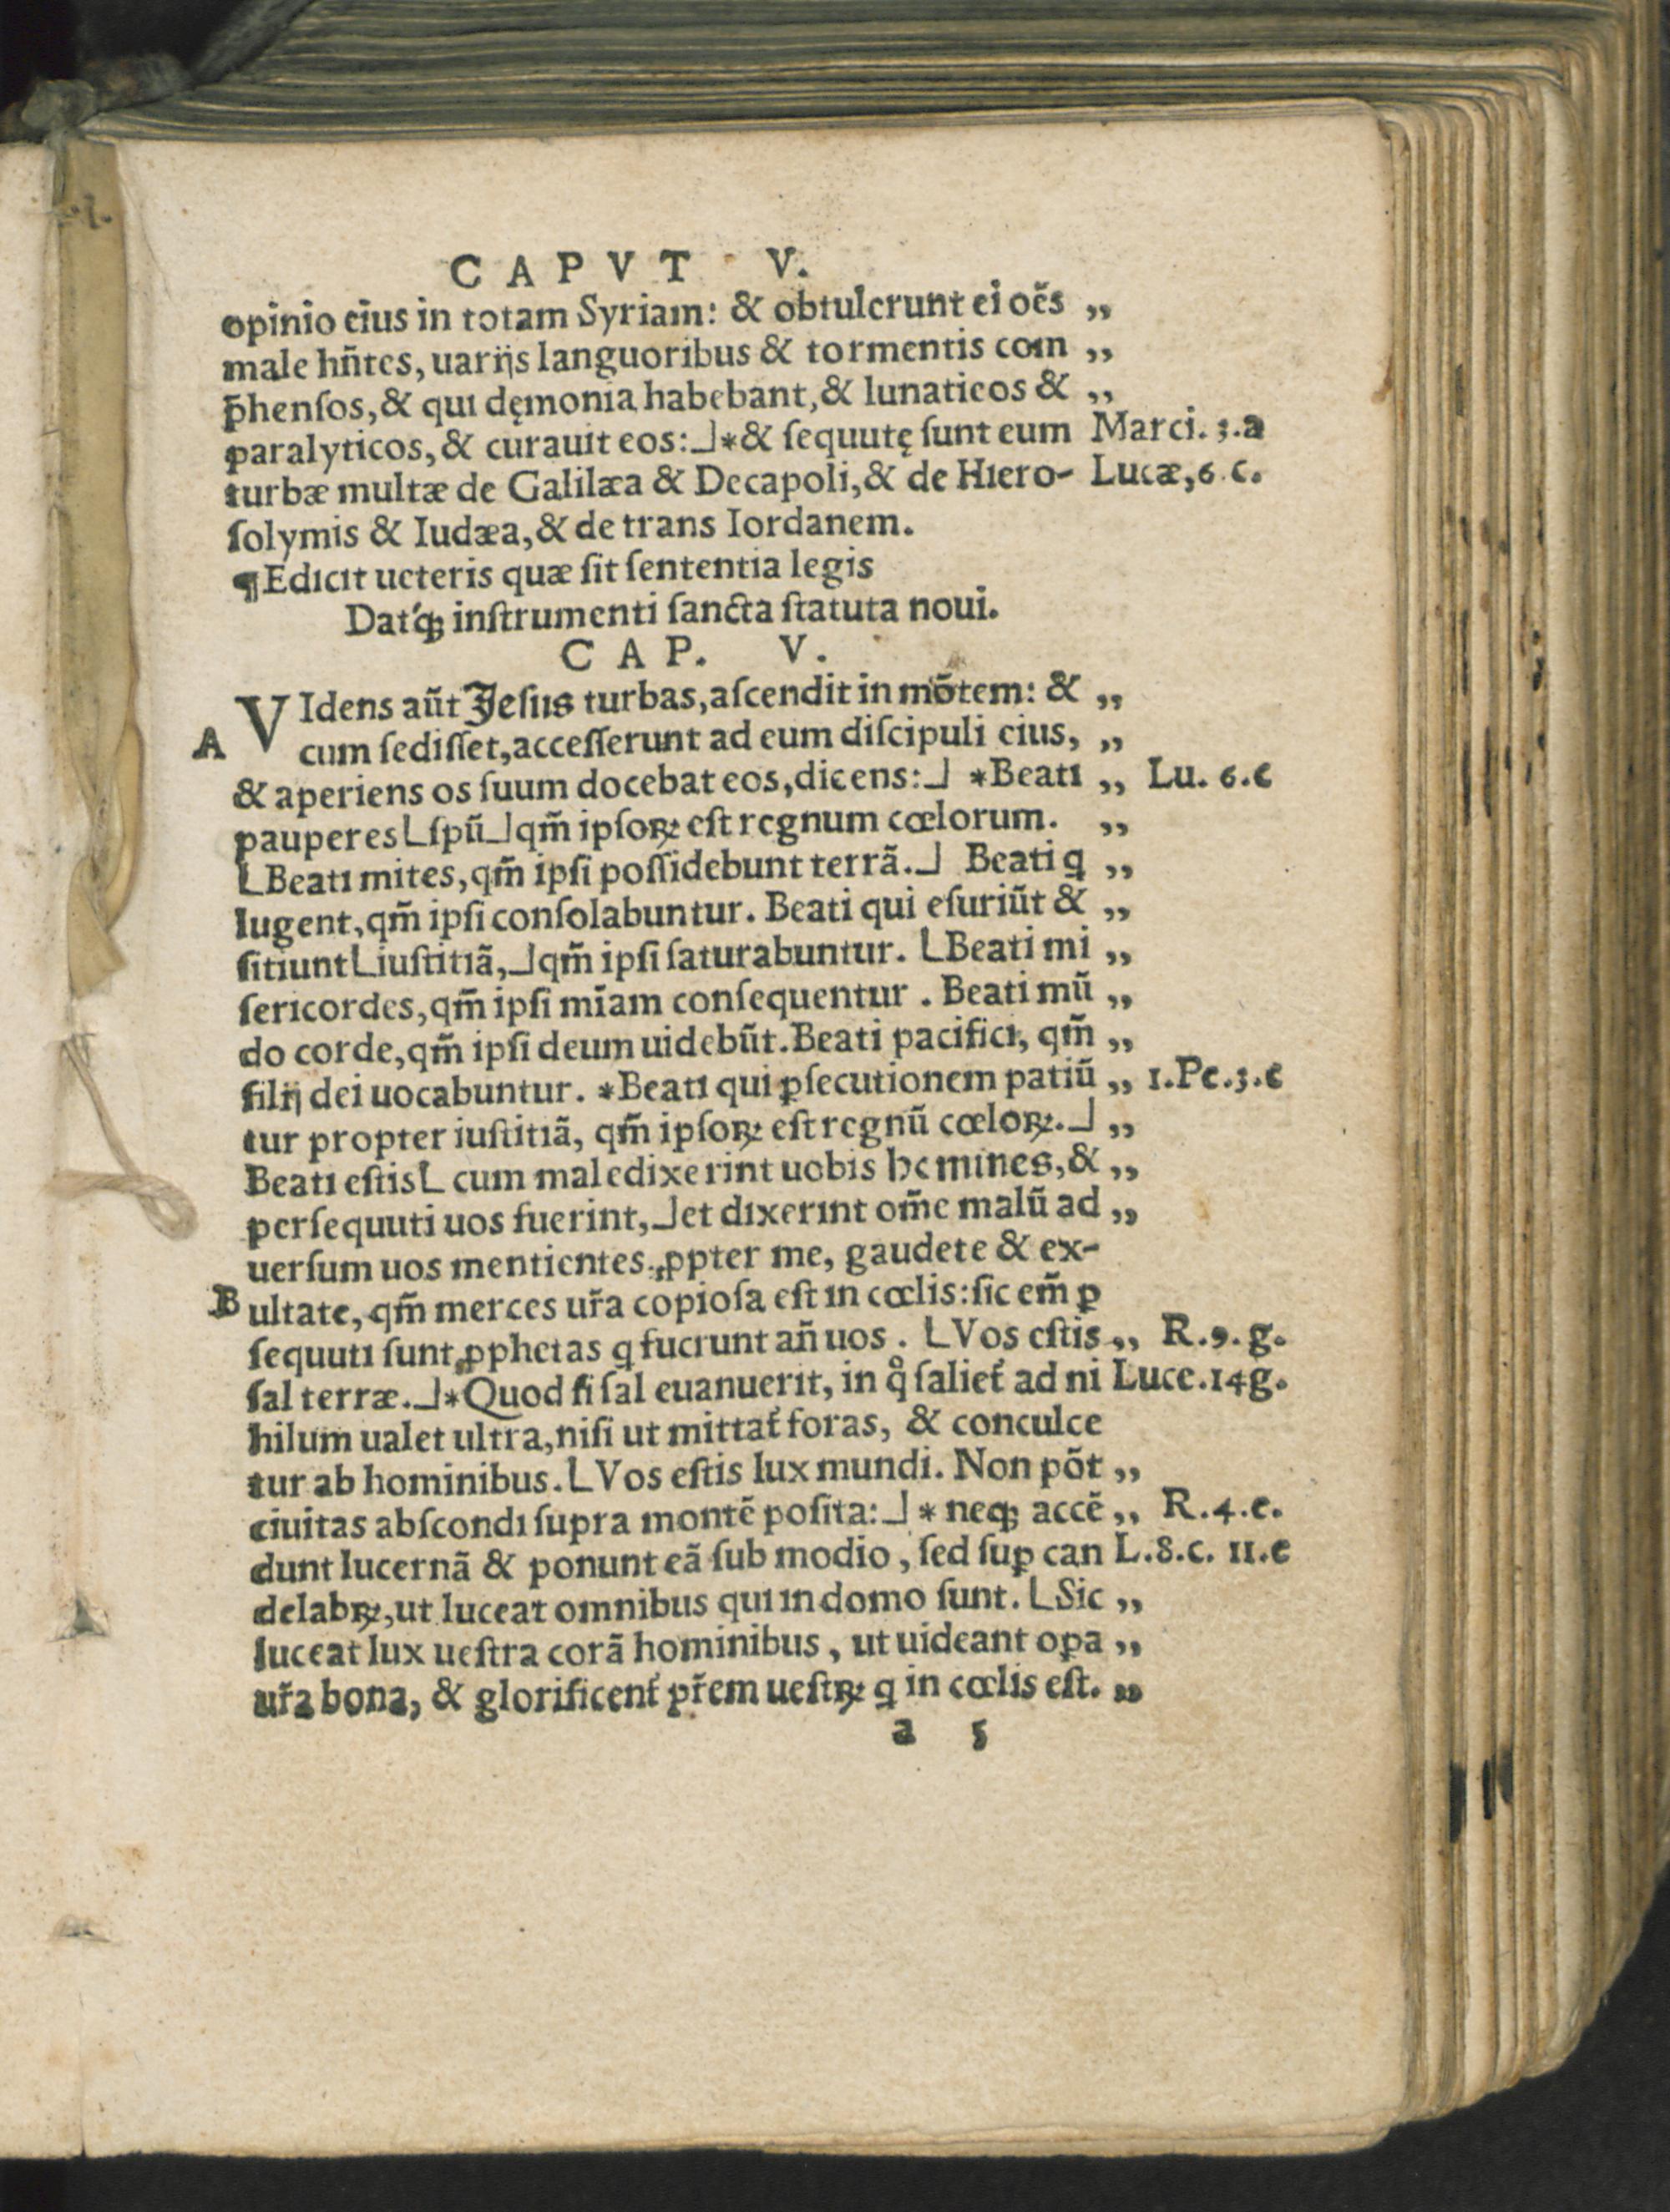 CAPVT V.
opinio eius in totam Syriam: & obtulerunt ei oẽs „
male hñtes, uarijs languoribus & tormentis com „
p̄henſos, & qui dęmonia habebant, & lunaticos & „
paralyticos, & curauit eos:⅃*& ſequutę ſunt eum Marci. 3.a
turbæ multæ de Galilæa & Decapoli, & de Hiero- Lucæ, 6 c.
ſolymis & Iudæa, & de trans Iordanem.
¶Edicit ueteris quæ ſit ſententia legis
Dat́qꝫ inſtrumenti ſancta ſtatuta noui.
CAP. V.
A VIdens aũt Jeſus turbas, aſcendit in mõtem: & „
cum ſediſſet, acceſſerunt ad eum diſcipuli eius, „
& aperiens os ſuum docebat eos, dicens:⅃ *Beati „ Lu. 6.c
pauperes L ſpũ⅃ qm̃ ipſoꝝ eſt regnum cœlorum. „
L Beati mites, qm̃ ipſi poſſidebunt terrã.⅃ Beati ꝗ „
lugent, qm̃ ipſi conſolabuntur. Beati qui eſuriũt & „
ſitiunt L iuſtitiã,⅃ qm̃ ipſi ſaturabuntur. L Beati mi „
ſericordes, qm̃ ipſi mĩam conſequentur. Beati mũ „
do corde, qm̃ ipſi deum uidebũt. Beati pacifici, qm̃ „
filij dei uocabuntur. *Beati qui ꝑſecutionem patiũ „ 1.Pe.3.c
tur propter iuſtitiã, qm̃ ipſoꝝ eſt regnũ cœloꝝ.⅃ „
Beati eſtis L cum maledixerint uobis homines, & „
perſequuti uos fuerint,⅃ et dixerint om̃e malũ ad „
uerſum uos mentientes, ꝓpter me, gaudete & ex-
B ultate, qm̃ merces ur̃a copioſa eſt in cœlis: ſic em̃ ꝑ
ſequuti ſunt ꝓphetas ꝗ fuerunt añ uos. L Vos eſtis „ R.9.g.
ſal terræ.⅃*Quod ſi ſal euanuerit, in qͦ ſaliet́ ad ni Luce.14g.
hilum ualet ultra, niſi ut mittat́ foras, & conculce
tur ab hominibus. L Vos eſtis lux mundi. Non põt „
ciuitas abſcondi ſupra montẽ poſita:⅃ * neqꝫ accẽ „ R.4.c.
dunt lucernã & ponunt eã ſub modio, ſed ſuꝑ can L.8.c. 11.e
delabꝝ, ut luceat omnibus qui in domo ſunt. L Sic „
luceat lux ueſtra corã hominibus, ut uideant oꝑa „
ur̃a bona, & glorificent́ pr̃em ueſtꝝ ꝗ in cœlis eſt. „
a 5